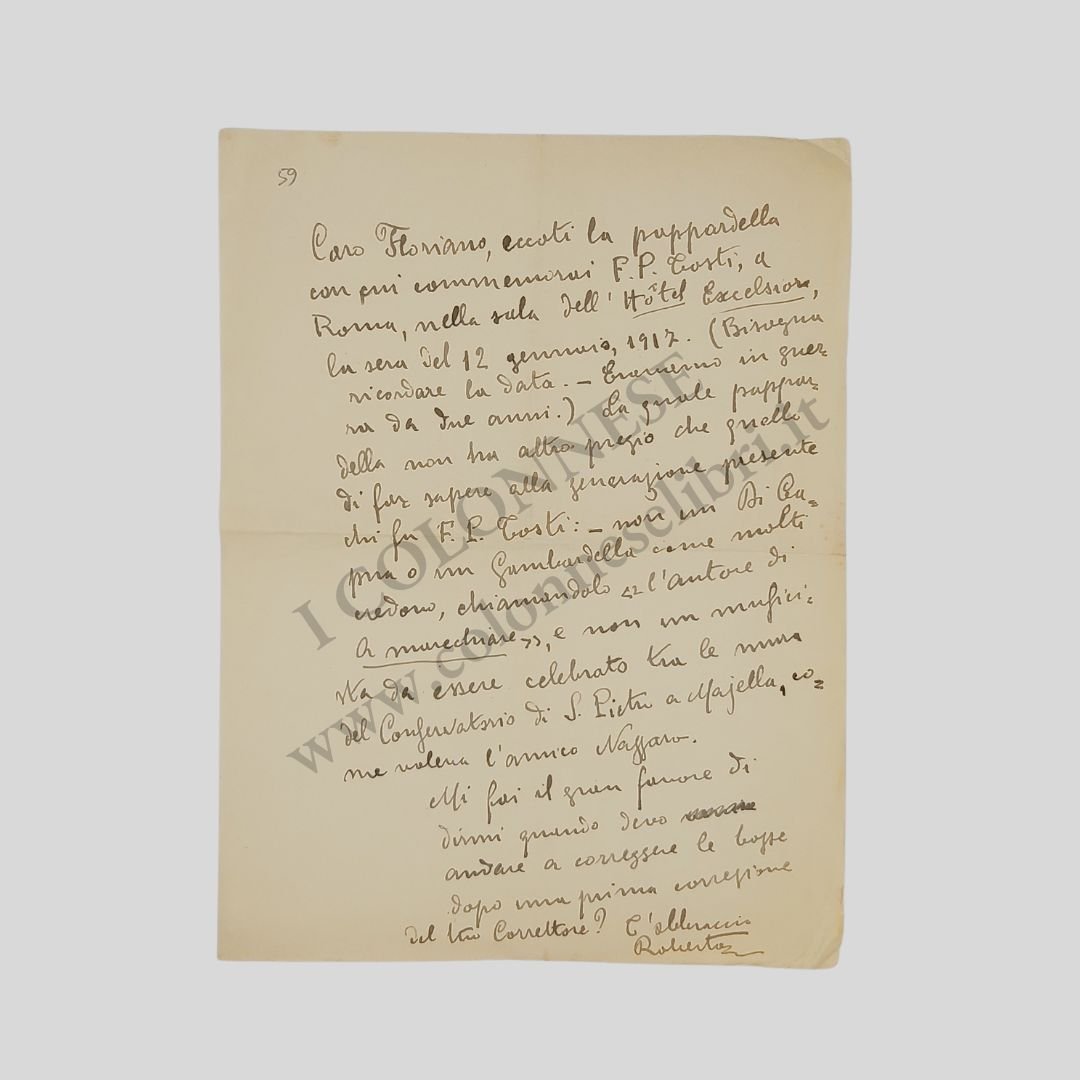 59
Caro Floriano, eccoti la pappardella
con cui commemorai F. P. Tosti, a
Roma, nella sala dell'Hôtel Excelsior,
la sera del 12 gennaio, 1917. (Bisogna
ricordare la data. – Eravamo in guer=
ra da due anni.) La quale pappar=
della non ha altro pregio che quello
di far sapere alla generazione presente
chi fu F. P. Tosti: – non un Di Ca=
pua o un Gambardella come molti
credono, chiamandolo «l'autore di
A marechiare», e non un musici=
sta da essere celebrato tra le mura
del Conservatorio di S. Pietro a Majella, co=
me voleva l'amico
Mi fai il gran favore di
dirmi quando devo
andare a correggere le bozze
dopo una prima correzione
del tuo Correttore? T'abbraccio
Roberto
I COLONNESE
www.colonneselibri.it